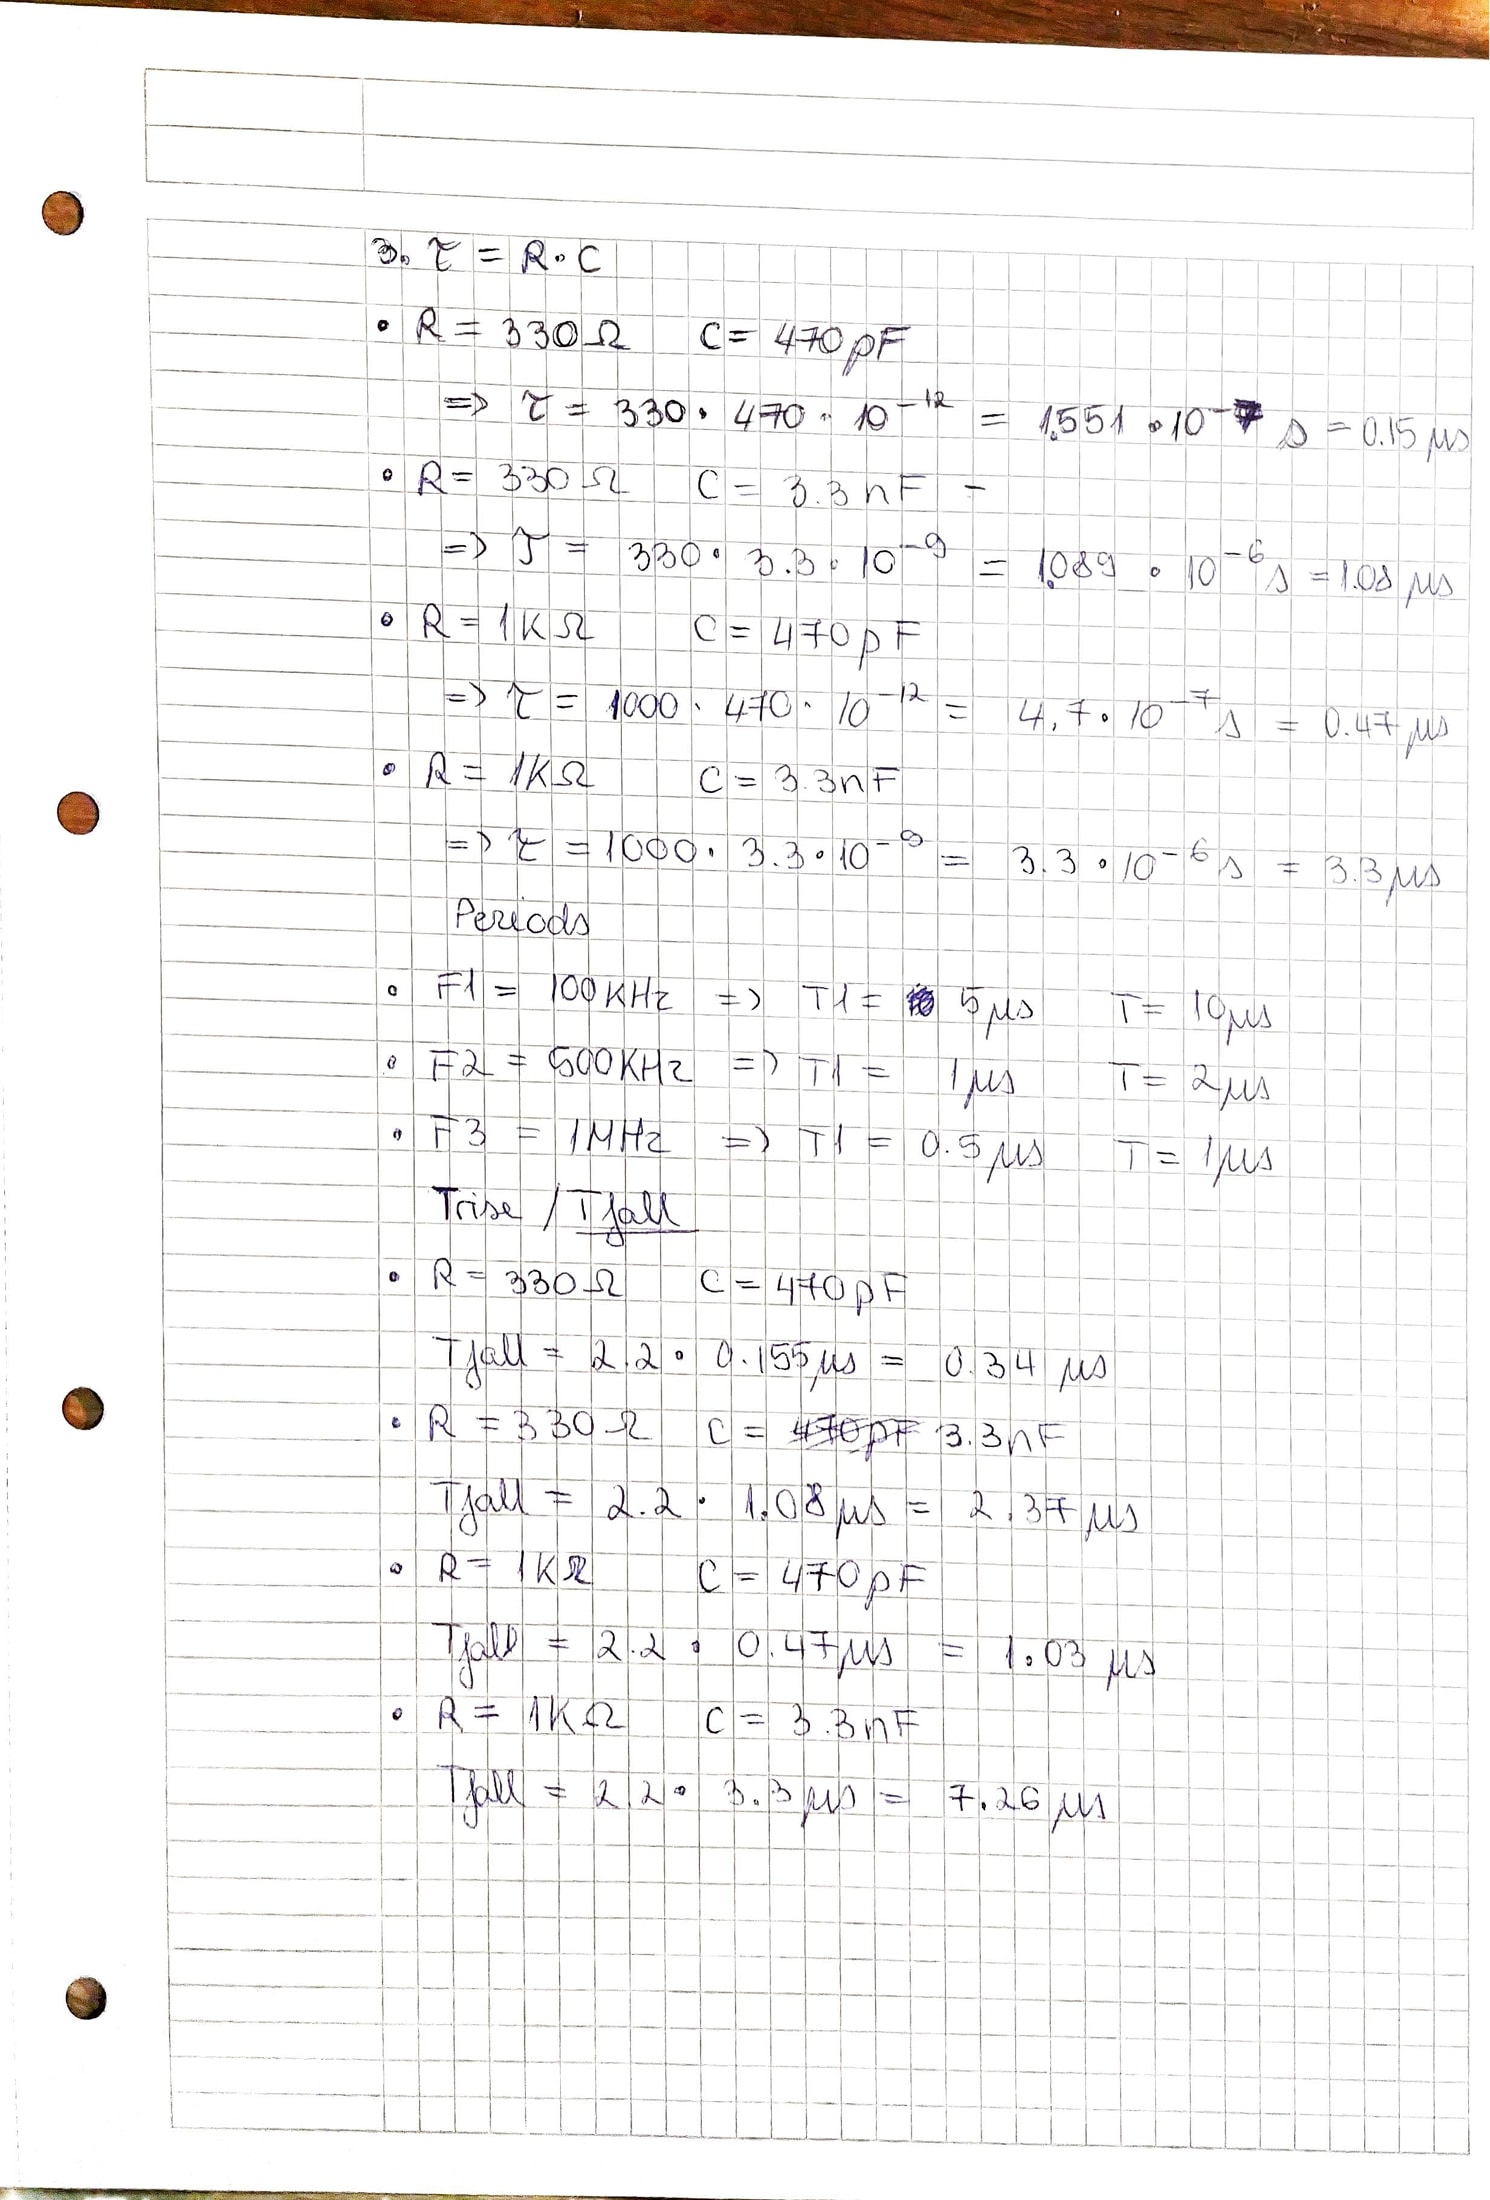 3. τ = R·C
• R = 330Ω C = 470pF
=> τ = 330 · 470 · 10⁻¹² = 1.551 · 10⁻⁷ s = 0.15 μs
• R = 330 Ω C = 3.3 nF -
=> τ = 330 · 3.3 · 10⁻⁹ = 1.089 · 10⁻⁶ s = 1.08 μs
• R = 1KΩ C = 470pF
=> τ = 1000 · 470 · 10⁻¹² = 4,7 · 10⁻⁷ s = 0.47 μs
• R = 1KΩ C = 3.3nF
=> τ = 1000 · 3.3 · 10⁻⁹ = 3.3 · 10⁻⁶ s = 3.3 μs
Periods
• F1 = 100KHz => T1 = 5μs T = 10μs
• F2 = 500KHz => T1 = 1μs T = 2μs
• F3 = 1MHz => T1 = 0.5μs T = 1μs
Trise / Tfall
• R = 330Ω C = 470pF
Tfall = 2.2 · 0.155μs = 0.34 μs
• R = 330Ω C = 470pF 3.3nF
Tfall = 2.2 · 1.08μs = 2.37μs
• R = 1KΩ C = 470pF
Tfall = 2.2 · 0.47μs = 1.03 μs
• R = 1KΩ C = 3.3nF
Tfall = 2.2 · 3.3μs = 7.26μs